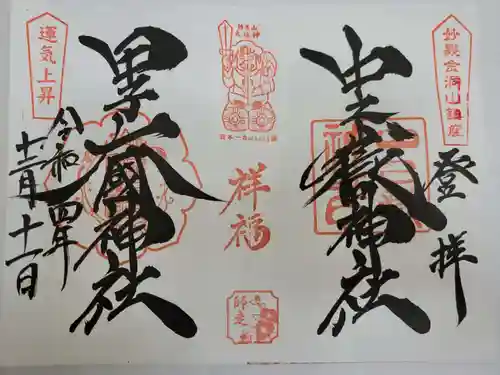 妙義金洞山鎮座
登拝
中之嶽神社
祥福
師走
甲子大國神社
運気上昇
令和四年
十二月十一日